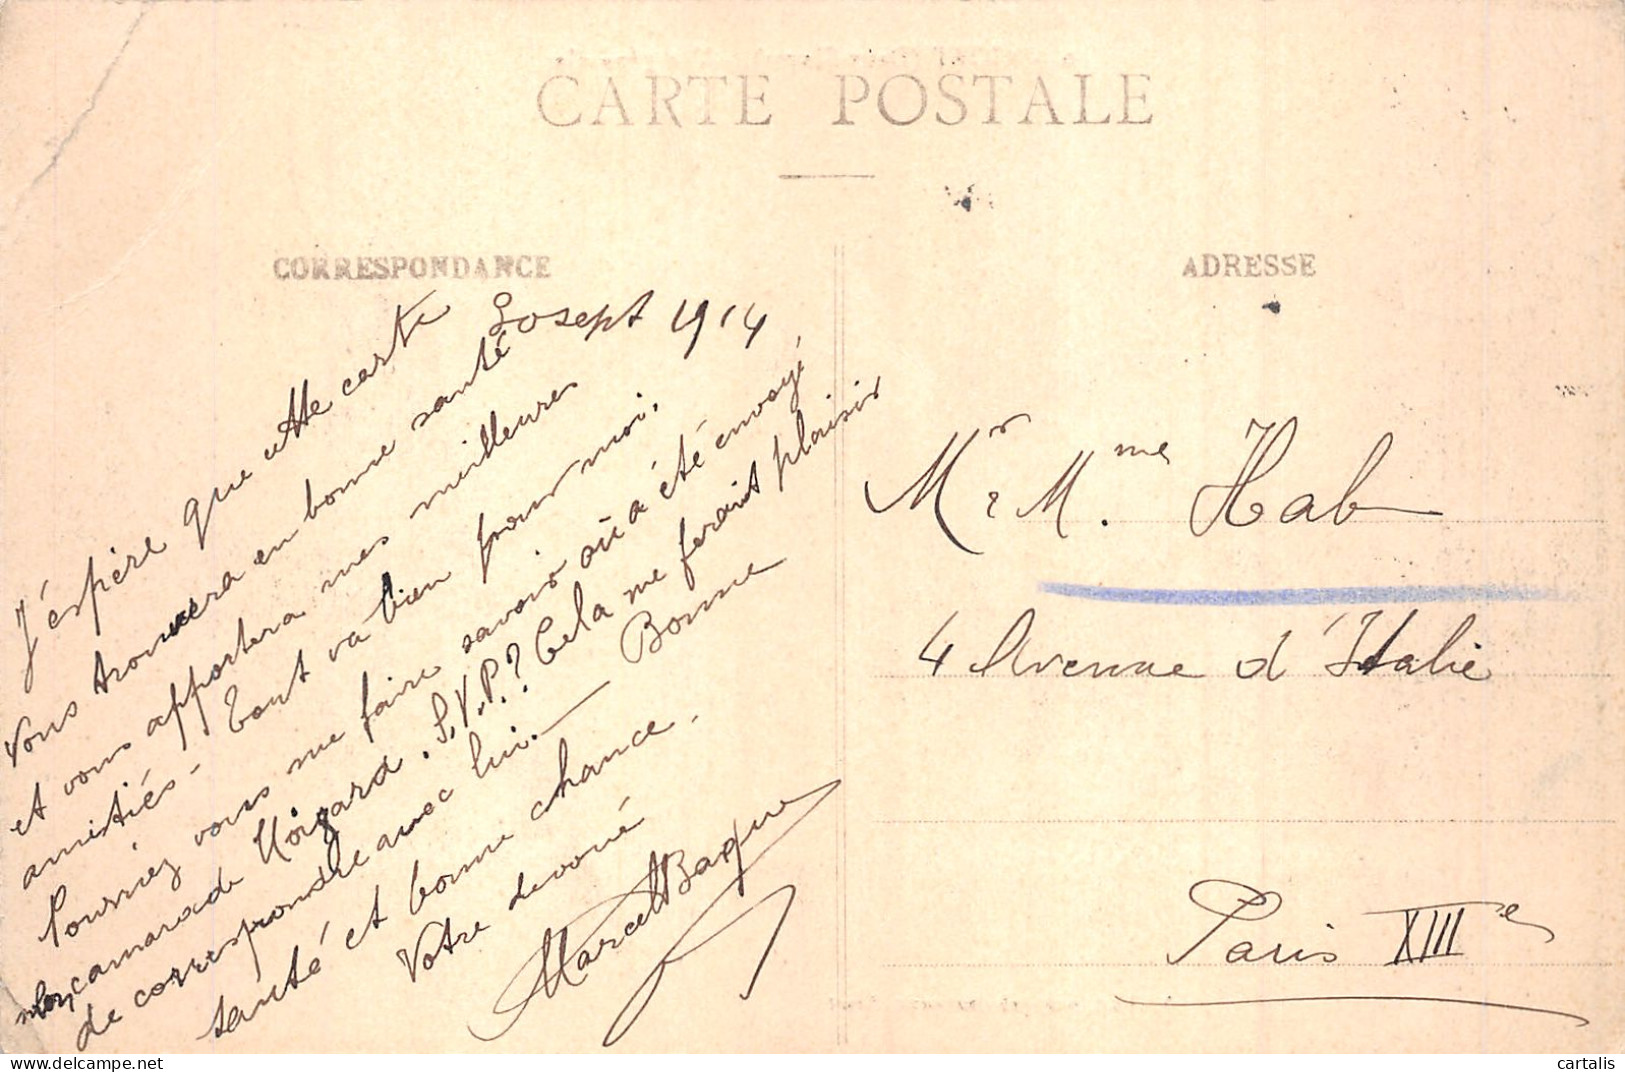 CARTE POSTALE
CORRESPONDANCE
ADRESSE
sept 1914
J'éspère que cette carte
vous trouvera en bonne santé
et vous apportera mes meilleures
amitiés - Tout va bien pour moi.
Pourriez vous me faire savoir où a été envoyé
mon camarade S.V.P.? Cela me ferait plaisir
de correspondre avec lui. — Bonne
santé et bonne chance.
Votre dévoué
Marcel
Mr & Mme. Hab
4 Avenue d'Italie
Paris XIIIe
cartalis